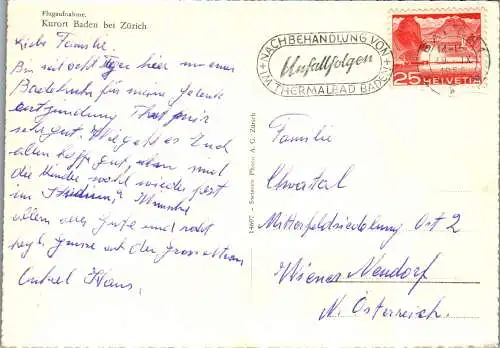 Flugaufnahme.
Kurort Baden bei Zürich
Liebe Familie.
Bin seit acht Tagen hier in einer
Badekur für meine Gelenk
entzündung That mir
sehr gut. Wie geht es Euch
allen hoffe gut, sind mal
die Kinder wohl wieder fest
im Studium? Wünsche
allen alles Gute und recht
herzl. Grüsse auch den Grosseltern
Onkel Hans.
14697 - Swissair Photo A. G. Zürich
NACHBEHANDLUNG VON
Unfallfolgen
IM THERMALBAD BADEN
25 HELVETIA
Familie
Chvatal
Mitterfeldsiedlung Ost 2
Wiener Neudorf
N. Österreich.